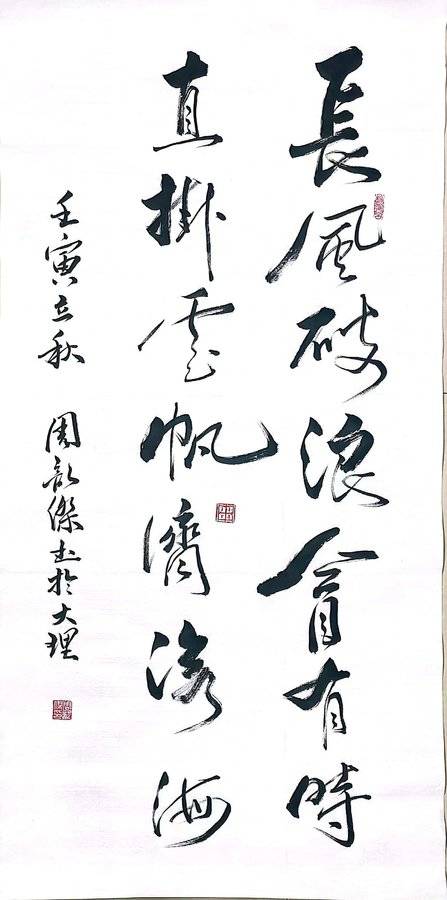 長風破浪會有時
直掛雲帆濟滄海
壬寅立秋 周韶傑書於大理